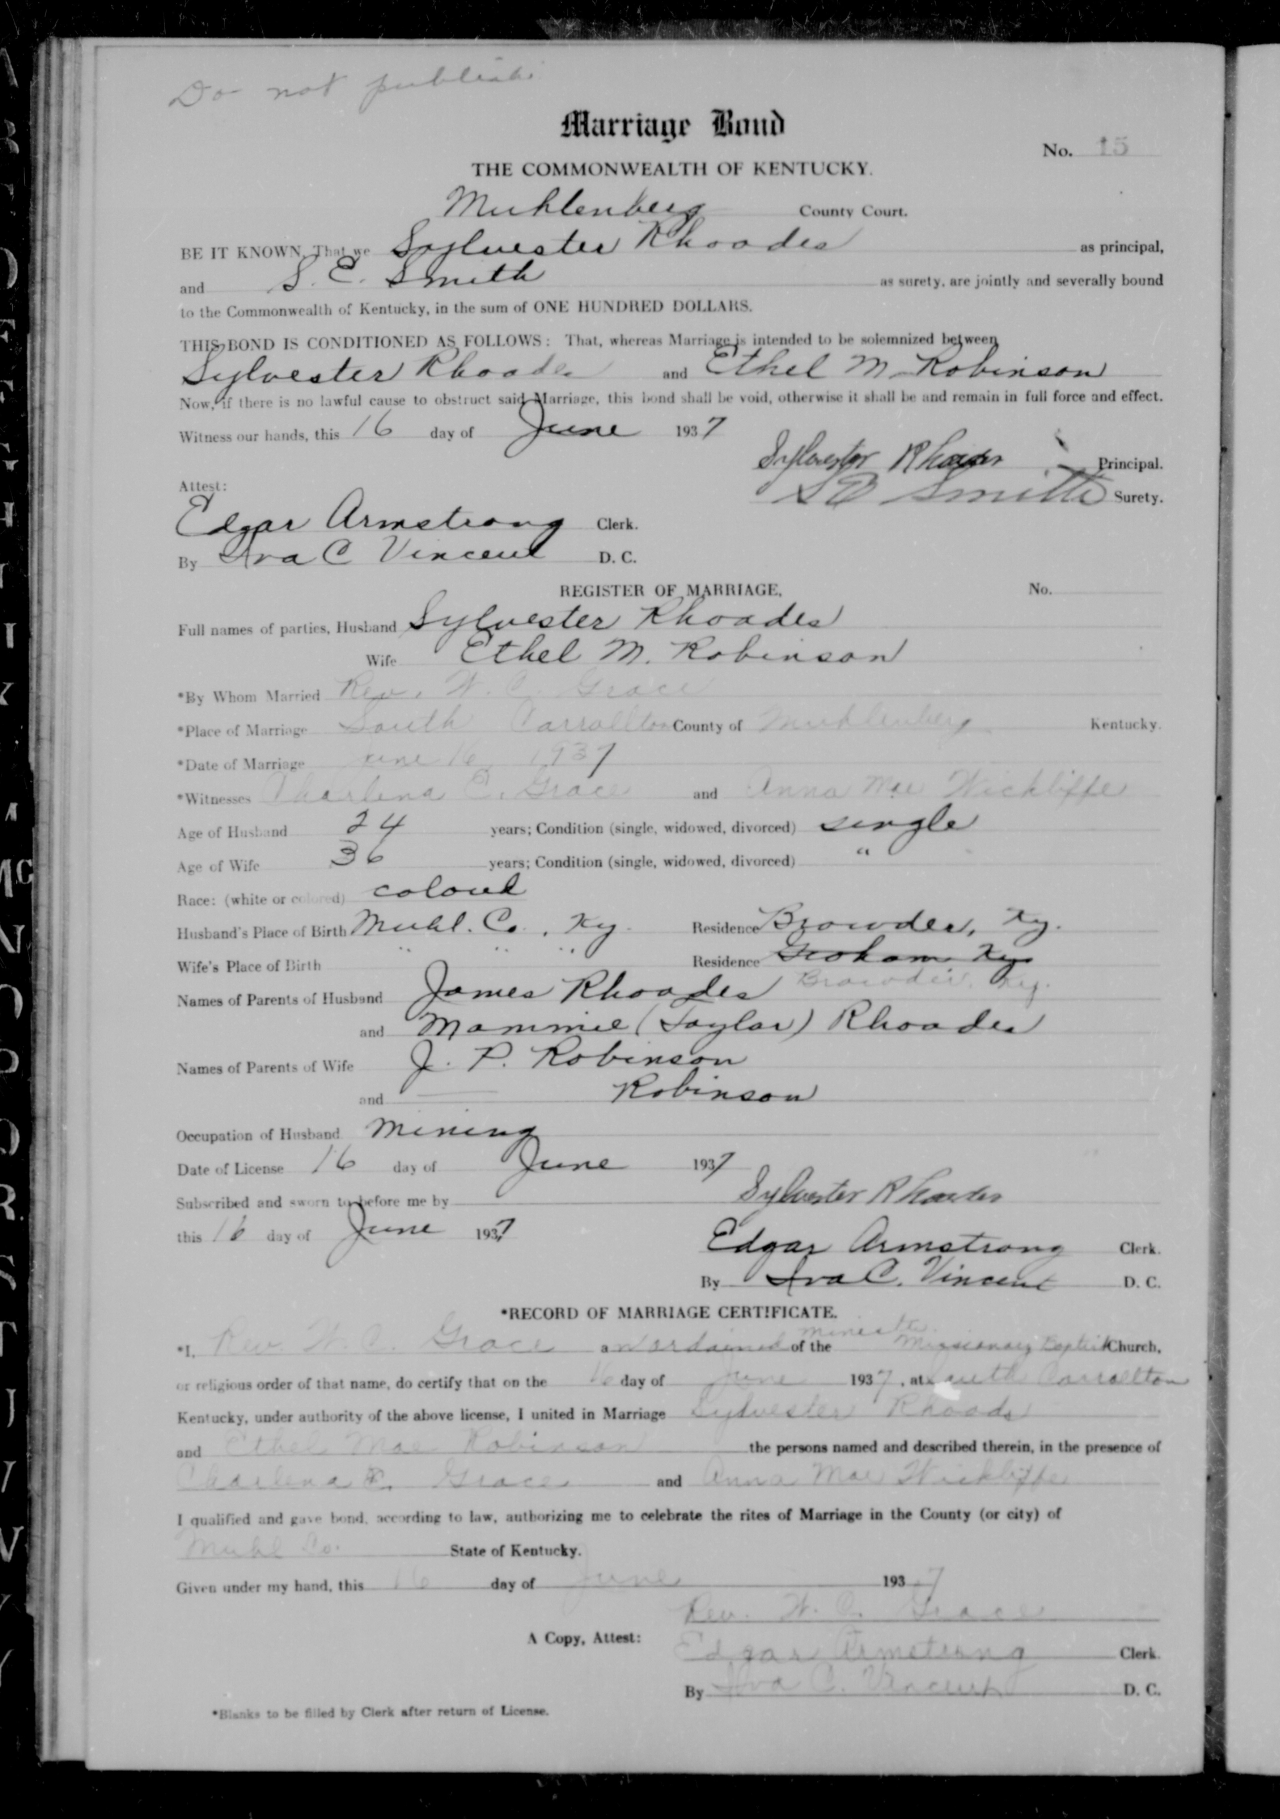 Do not publish
Marriage Bond
No. 15
THE COMMONWEALTH OF KENTUCKY.
Muhlenberg County Court.
BE IT KNOWN, That we Sylvester Rhoades as principal,
and S. E. Smith as surety, are jointly and severally bound
to the Commonwealth of Kentucky, in the sum of ONE HUNDRED DOLLARS.
THIS BOND IS CONDITIONED AS FOLLOWS: That, whereas Marriage is intended to be solemnized between
Sylvester Rhoades and Ethel M. Robinson
Now, if there is no lawful cause to obstruct said Marriage, this bond shall be void, otherwise it shall be and remain in full force and effect.
Witness our hands, this 16 day of June 1937
Sylvester Rhoades Principal.
S E Smith Surety.
Attest:
Edgar Armstrong Clerk.
By Iva C Vincent D. C.
REGISTER OF MARRIAGE, No.
Full names of parties, Husband Sylvester Rhoades
Wife Ethel M. Robinson
*By Whom Married Rev. W. C. Grace
*Place of Marriage South Carrollton County of Muhlenberg Kentucky.
*Date of Marriage June 16, 1937
*Witnesses Charlena C. Grace and Anna Mae Wickliffe
Age of Husband 24 years; Condition (single, widowed, divorced) single
Age of Wife 36 years; Condition (single, widowed, divorced) "
Race: (white or colored) colored
Husband's Place of Birth Muhl. Co., Ky. Residence Browder, Ky.
Wife's Place of Birth " " " Residence Graham Ky
Browder, Ky.
Names of Parents of Husband James Rhoades
and Mammie (Taylor) Rhoades
Names of Parents of Wife J. P. Robinson
and — Robinson
Occupation of Husband Mining
Date of License 16 day of June 1937
Subscribed and sworn to before me by Sylvester Rhoades
this 16 day of June 1937
Edgar Armstrong Clerk.
By Iva C. Vincent D. C.
*RECORD OF MARRIAGE CERTIFICATE.
*I, Rev. W. C. Grace a n ordained minister of the Missionary Baptist Church,
or religious order of that name, do certify that on the 16 day of June 1937, at South Carrollton
Kentucky, under authority of the above license, I united in Marriage Sylvester Rhoads
and Ethel Mae Robinson the persons named and described therein, in the presence of
Charlena C. Grace and Anna Mae Wickliffe
I qualified and gave bond, according to law, authorizing me to celebrate the rites of Marriage in the County (or city) of
Muhl Co. State of Kentucky.
Given under my hand, this 16 day of June 1937
Rev. W. C. Grace
A Copy, Attest: Edgar Armstrong Clerk.
By Iva C. Vincent D. C.
*Blanks to be filled by Clerk after return of License.